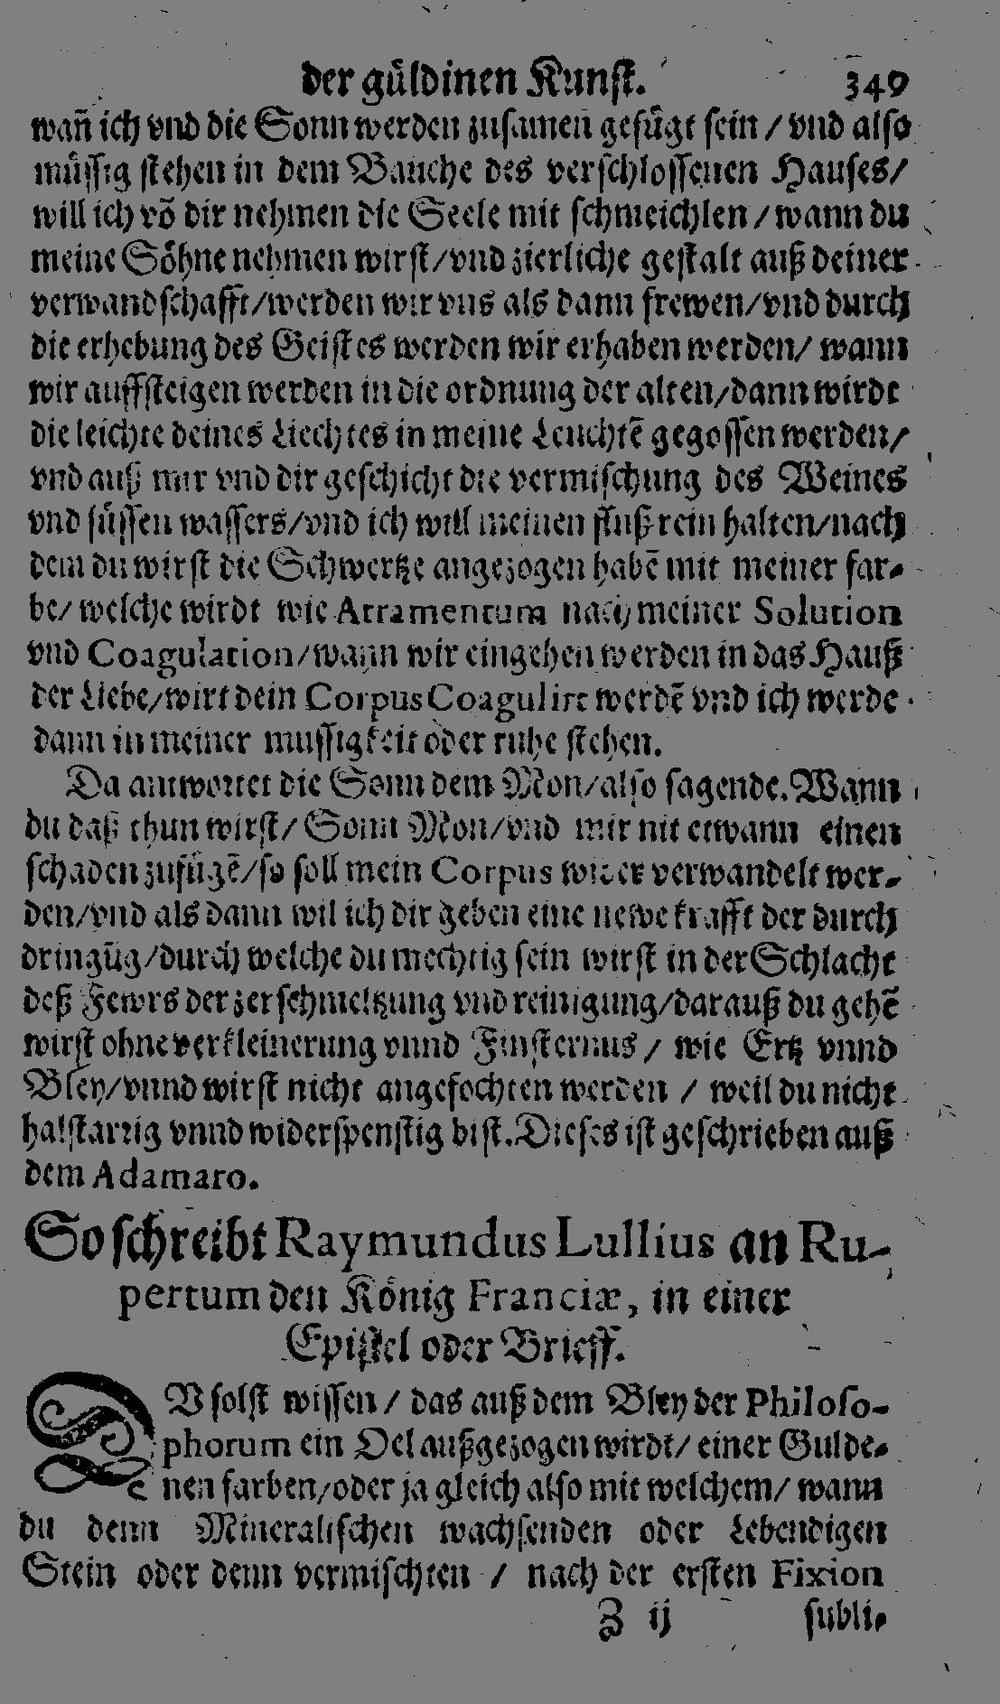 der güldinen Kunst. 349
wañ ich vnd die Sonn werden zusamen gefügt sein / vnd also
müssig stehen in dem Bauche des verschlossenen Hauses/
will ich võ dir nehmen die Seele mit schmeichlen / wann du
meine Söhne nehmen wirst/vnd zierliche gestalt auß deiner
verwandschafft/werden wir vns als dann frewen/vnd durch
die erhebung des Geistes werden wir erhaben werden/ wann
wir auffsteigen werden in die ordnung der alten/dann wirdt
die leichte deines Liechtes in meine Leuchtẽ gegossen werden/
vnd auß mir vnd dir geschicht die vermischung des Weines
vnd süssen wassers/vnd ich will meinen fluß rein halten/nach
dem du wirst die Schwertze angezogen habẽ mit meiner far-
be/ welche wirdt wie Atramentum nach meiner Solution
vnd Coagulation/wann wir eingehen werden in das Hauß
der Liebe/wirt dein Corpus Coagulirt werdẽ vnd ich werde
dann in meiner mussigkeit oder ruhe stehen.
Da antwortet die Sonn dem Mon/also sagende. Wann
du daß thun wirst/ Sonn Mon/vnd mir nit etwann einen
schaden zufügẽ/so soll mein Corpus wider verwandelt wer-
den/vnd als dann wil ich dir geben eine newe krafft der durch
dringũg/durch welche du mechtig sein wirst in der Schlacht
deß Fewrs der zerschmeltzung vnd reinigung/darauß du gehẽ
wirst ohne verkleinerung vnnd Finsternus / wie Ertz vnnd
Bley/vnnd wirst nicht angefochten werden / weil du nicht
halstarrig vnnd widerspenstig bist. Dieses ist geschrieben auß
dem Adamaro.
So schreibt Raymundus Lullius an Ru-
pertum den König Franciæ, in einer
Epistel oder Brieff.
DV solst wissen / das auß dem Bley der Philoso-
phorum ein Oel außgezogen wirdt/ einer Gulde-
nen farben/oder ja gleich also mit welchem/ wann
du denn Mineralischen wachsenden oder Lebendigen
Stein oder denn vermischten / nach der ersten Fixion
Z ij subli-